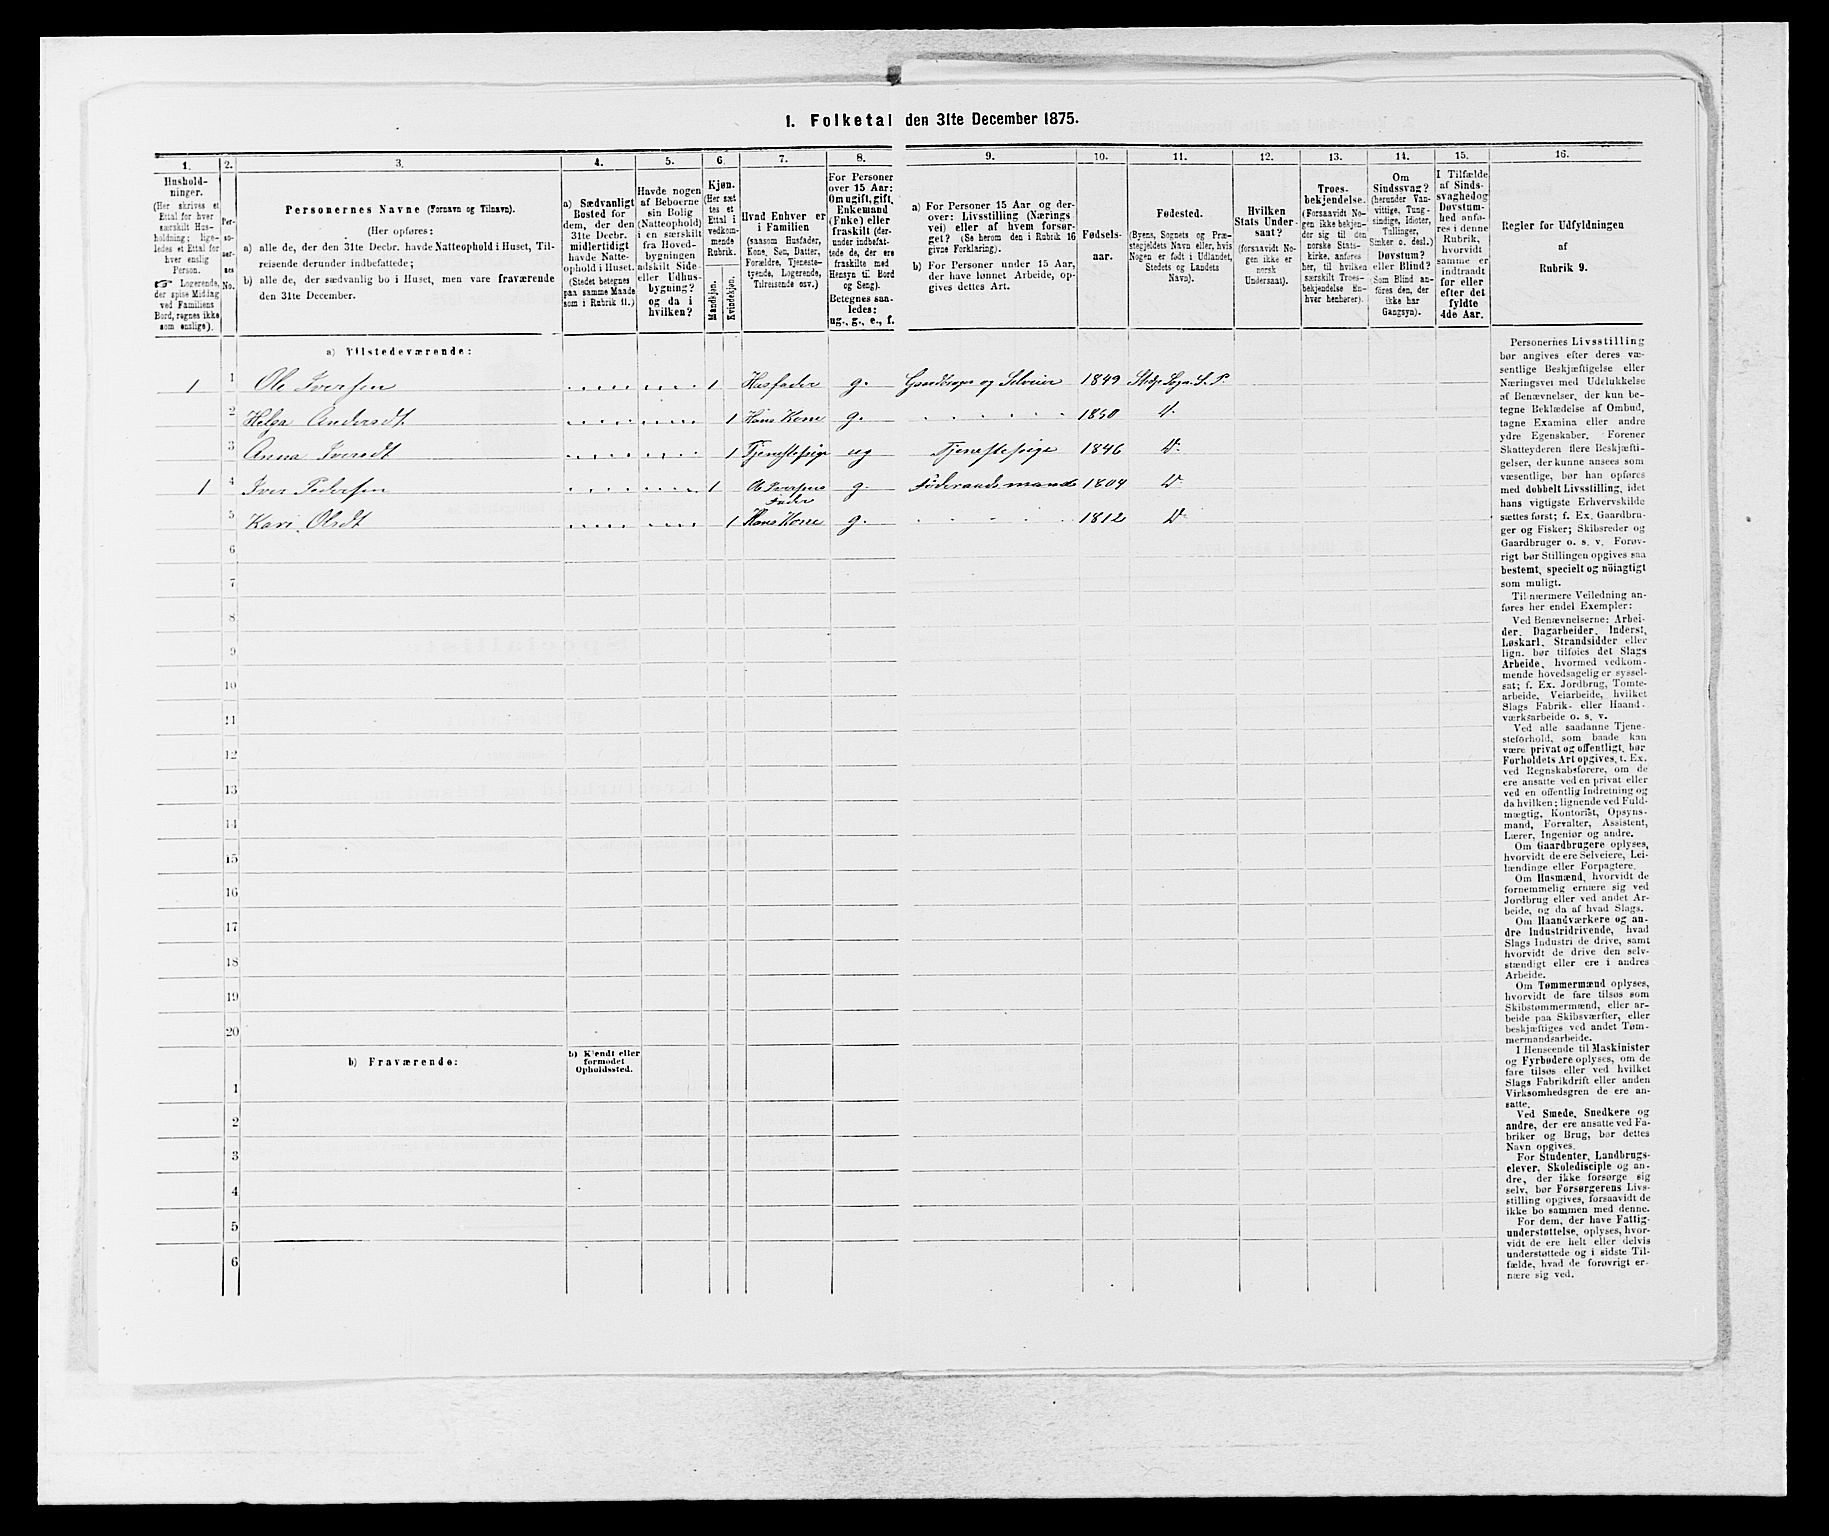 1. Folketal den 31te December 1875.
1. 2. 3. 4. 5. 6. 7. 8. 9. 10. 11. 12. 13. 14. 15. 16.
Hushold-
ninger.
(Her skrives et
Ettal for hver
særskilt Hus-
holdning; lige-
ledes et Ettal for
hver enslig
Person.
☞ Logerende,
der spise Middag
ved Familiens
Bord, regnes ikke
som enslige).
Per-
so-
ner-
nes
No.
Personernes Navne (Fornavn og Tilnavn).
(Her opføres:
a) alle de, der den 31te Decbr. havde Natteophold i Huset, Til-
reisende derunder indbefattede;
b) alle de, der sædvanlig bo i Huset, men vare fraværende
den 31te December.
a) Sædvanligt
Bosted for
dem, der den
31te Decbr.
midlertidigt
havde Natte-
ophold i Huset.
(Stedet betegnes
paa samme Maade
som i Rubrik 11.)
Havde nogen
af Beboerne
sin Bolig
(Natteophold)
i en særskilt
fra Hoved-
bygningen
adskilt Side-
eller Udhus-
bygning?
og da i
hvilken?
Kjøn.
(Her sæt
tes et
Ettal i
vedkom-
mende
Rubrik.
Mandkjøn.
Kvindekjøn.
Hvad Enhver er
i Familien
(saasom Husfader,
Kone, Søn, Datter,
Forældre, Tjeneste-
tyende, Logerende,
Tilreisende osv.)
For Personer
over 15 Aar:
Om ugift, gift,
Enkemand
(Enke) eller
fraskilt (der-
under indbefat-
tede de, der ere
fraskilte med
Hensyn til Bord
og Seng).
Betegnes saa-
ledes:
ug., g., e., f.
a) For Personer 15 Aar og der-
over: Livsstilling (Nærings
vei) eller af hvem forsør-
get? (Se herom den i Rubrik 16
givne Forklaring).
b) For Personer under 15 Aar,
der have lønnet Arbeide, op-
gives dettes Art.
Fødsels-
aar.
Fødested.
(Byens, Sognets og Præ-
stegjeldets Navn eller, hvis
Nogen er født i Udlandet,
Stedets og Landets
Navn).
Hvilken
Stats Under-
saat?
(forsaavidt No-
gen ikke er
norsk
Undersaat).
Troes-
bekjendelse.
(Forsaavidt No-
gen ikke bekjen-
der sig til den
norske Stats-
kirke, anføres
her, til hvilken
særskilt Troes-
bekjendelse En-
hver henhører).
Om
Sindssvag?
(herunder Van-
vittige, Tung-
sindige, Idioter,
Sinker o. desl.)
Døvstum?
eller Blind?
(Som Blind an-
føres den, der
ikke har
Gangsyn).
I Tilfælde
af Sinds-
svaghed og
Døvstum-
hed anfø-
res i denne
Rubrik,
hvorvidt
samme er
indtraadt
før eller
efter det
fyldte
4de Aar.
Regler for Udfyldningen
af
Rubrik 9.
a) Tilstedeværende:
1 1 Ole Iversen 1 Husfader g. Gaardbruger og Selveier 1849 S. P.
2 Helga Andersdt 1 Hans Kone g. 1850 D:
3 Anna Iversdt 1 Tjenestepige ug Tjenestepige 1846 D:
1 4 Iver Pedersen 1 Ole Iversens g. Føderaadsmand 1804 D:
Fader
5 Kari Olsdt 1 Hans Kone g. 1812 D:
6
7
8
9
10
11
12
13
14
15
16
17
18
19
20
b) Fraværende:
b) Kjendt eller
formodet
Opholdssted.
1
2
3
4
5
6
Personernes Livsstilling
bør angives efter deres væ-
sentlige Beskjæftigelse eller
Næringsvei med Udelukkelse
af Benævnelser, der kun be-
tegne Beklædelse af Ombud,
tagne Examina eller andre
ydre Egenskaber. Forener
Skatteyderen flere Beskjæfti-
gelser, der kunne ansees som
væsentlige, bør han opføres
med dobbelt Livsstilling, idet
hans vigtigste Erhvervskilde
sættes først; f. Ex. Gaardbru-
ger og Fisker; Skibsreder og
Gaardbruger o. s. v. Forøv-
rigt bør Stillingen opgives saa
bestemt, specielt og nöiagtigt
som muligt.
Til nærmere Veiledning an-
føres her endel Exempler:
Ved Benævnelserne: Arbei-
der, Dagarbeider, Inderst,
Løskarl, Strandsidder eller
lign. bør tilføies det Slags
Arbeide, hvormed vedkom-
mende hovedsagelig er syssel-
sat; f. Ex. Jordbrug, Tomte-
arbeide, Veiarbeide, hvilket
Slags Fabrik- eller Haand-
værksarbeide o. s. v.
Ved alle saadanne Tjene-
steforhold, som baade kan
være privat og offentligt, bør
Forholdets Art opgives, f. Ex.
ved Regnskabsførere, om de
ere ansatte ved en privat eller
ved en offentlig Indretning og
da hvilken; lignende ved Fuld-
mægtig, Kontorist, Opsyns-
mand, Forvalter, Assistent,
Lærer, Ingeniør og andre.
Om Gaardbrugere oplyses,
hvorvidt de ere Selveiere, Lei-
lændinge eller Forpagtere.
Om Husmænd, hvorvidt de
fornemmelig ernære sig ved
Jordbrug eller ved andet Ar-
beide, og da af hvad Slags.
Om Haandværkere og an-
dre Industridrivende, hvad
Slags Industri de drive, samt
hvorvidt de drive den selv-
stændigt eller ere i andres
Arbeide.
Om Tømmermænd oplyses,
hvorvidt de fare tilsøs som
Skibstømmermænd, eller ar-
beide paa Skibsværfter, eller
beskjæftiges ved andet Tøm-
mermandsarbeide.
I Henseende til Maskinister
og Fyrbødere oplyses, om de
fare tilsøs eller ved hvilket
Slags Fabrikdrift eller anden
Virksomhedsgren de ere an-
satte.
Ved Smede, Snedkere og
andre, der ere ansatte ved Fa-
briker og Brug, bør dettes
Navn opgives.
For Studenter, Landbrugs-
elever, Skoledisciple og an-
dre, der ikke forsørge sig
selv, bør Forsørgerens Livs-
stilling opgives, forsaavidt de
ikke bo sammen med denne.
For dem, der have Fattig-
understøttelse, oplyses, hvor-
vidt de ere helt eller delvis
understøttede og i sidste Til-
fælde, hvad de forøvrigt er-
nære sig ved.